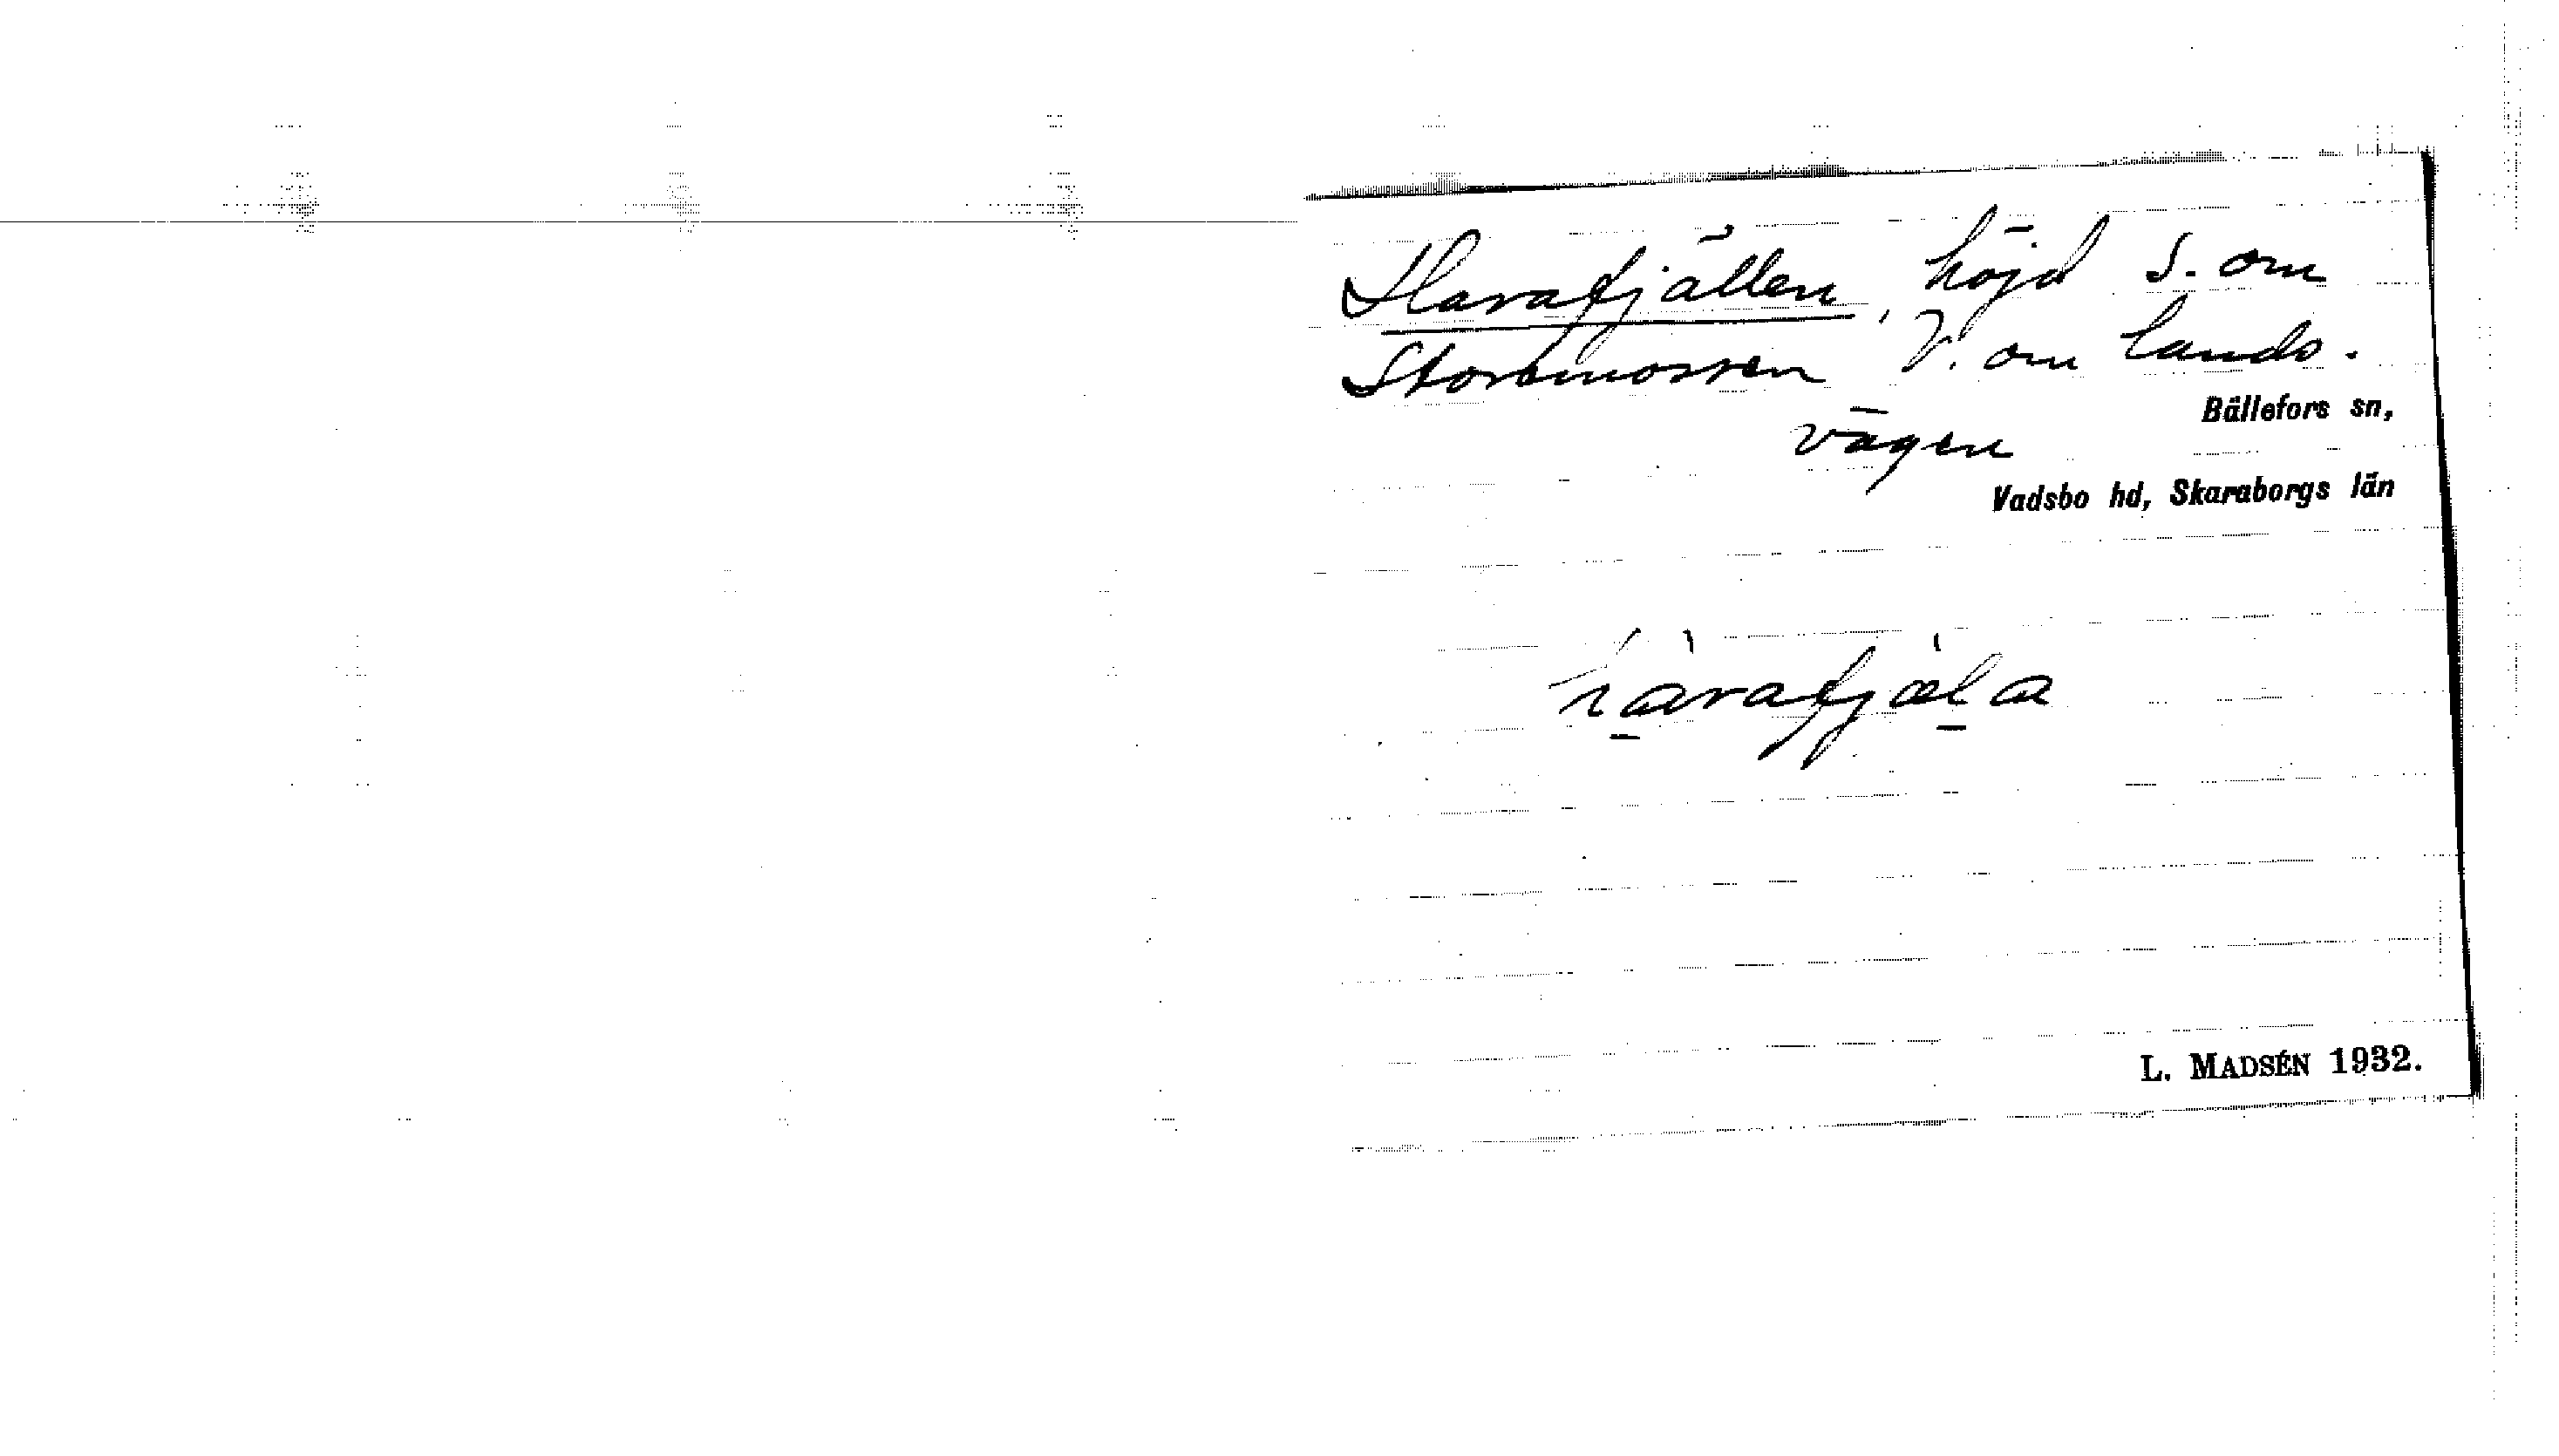 Harafjällen, höjd S. om
Stormossen V. om lands-
vägen
Bällefors sn,
Vadsbo hd, Skaraborgs län
L. MADSÉN 1932.